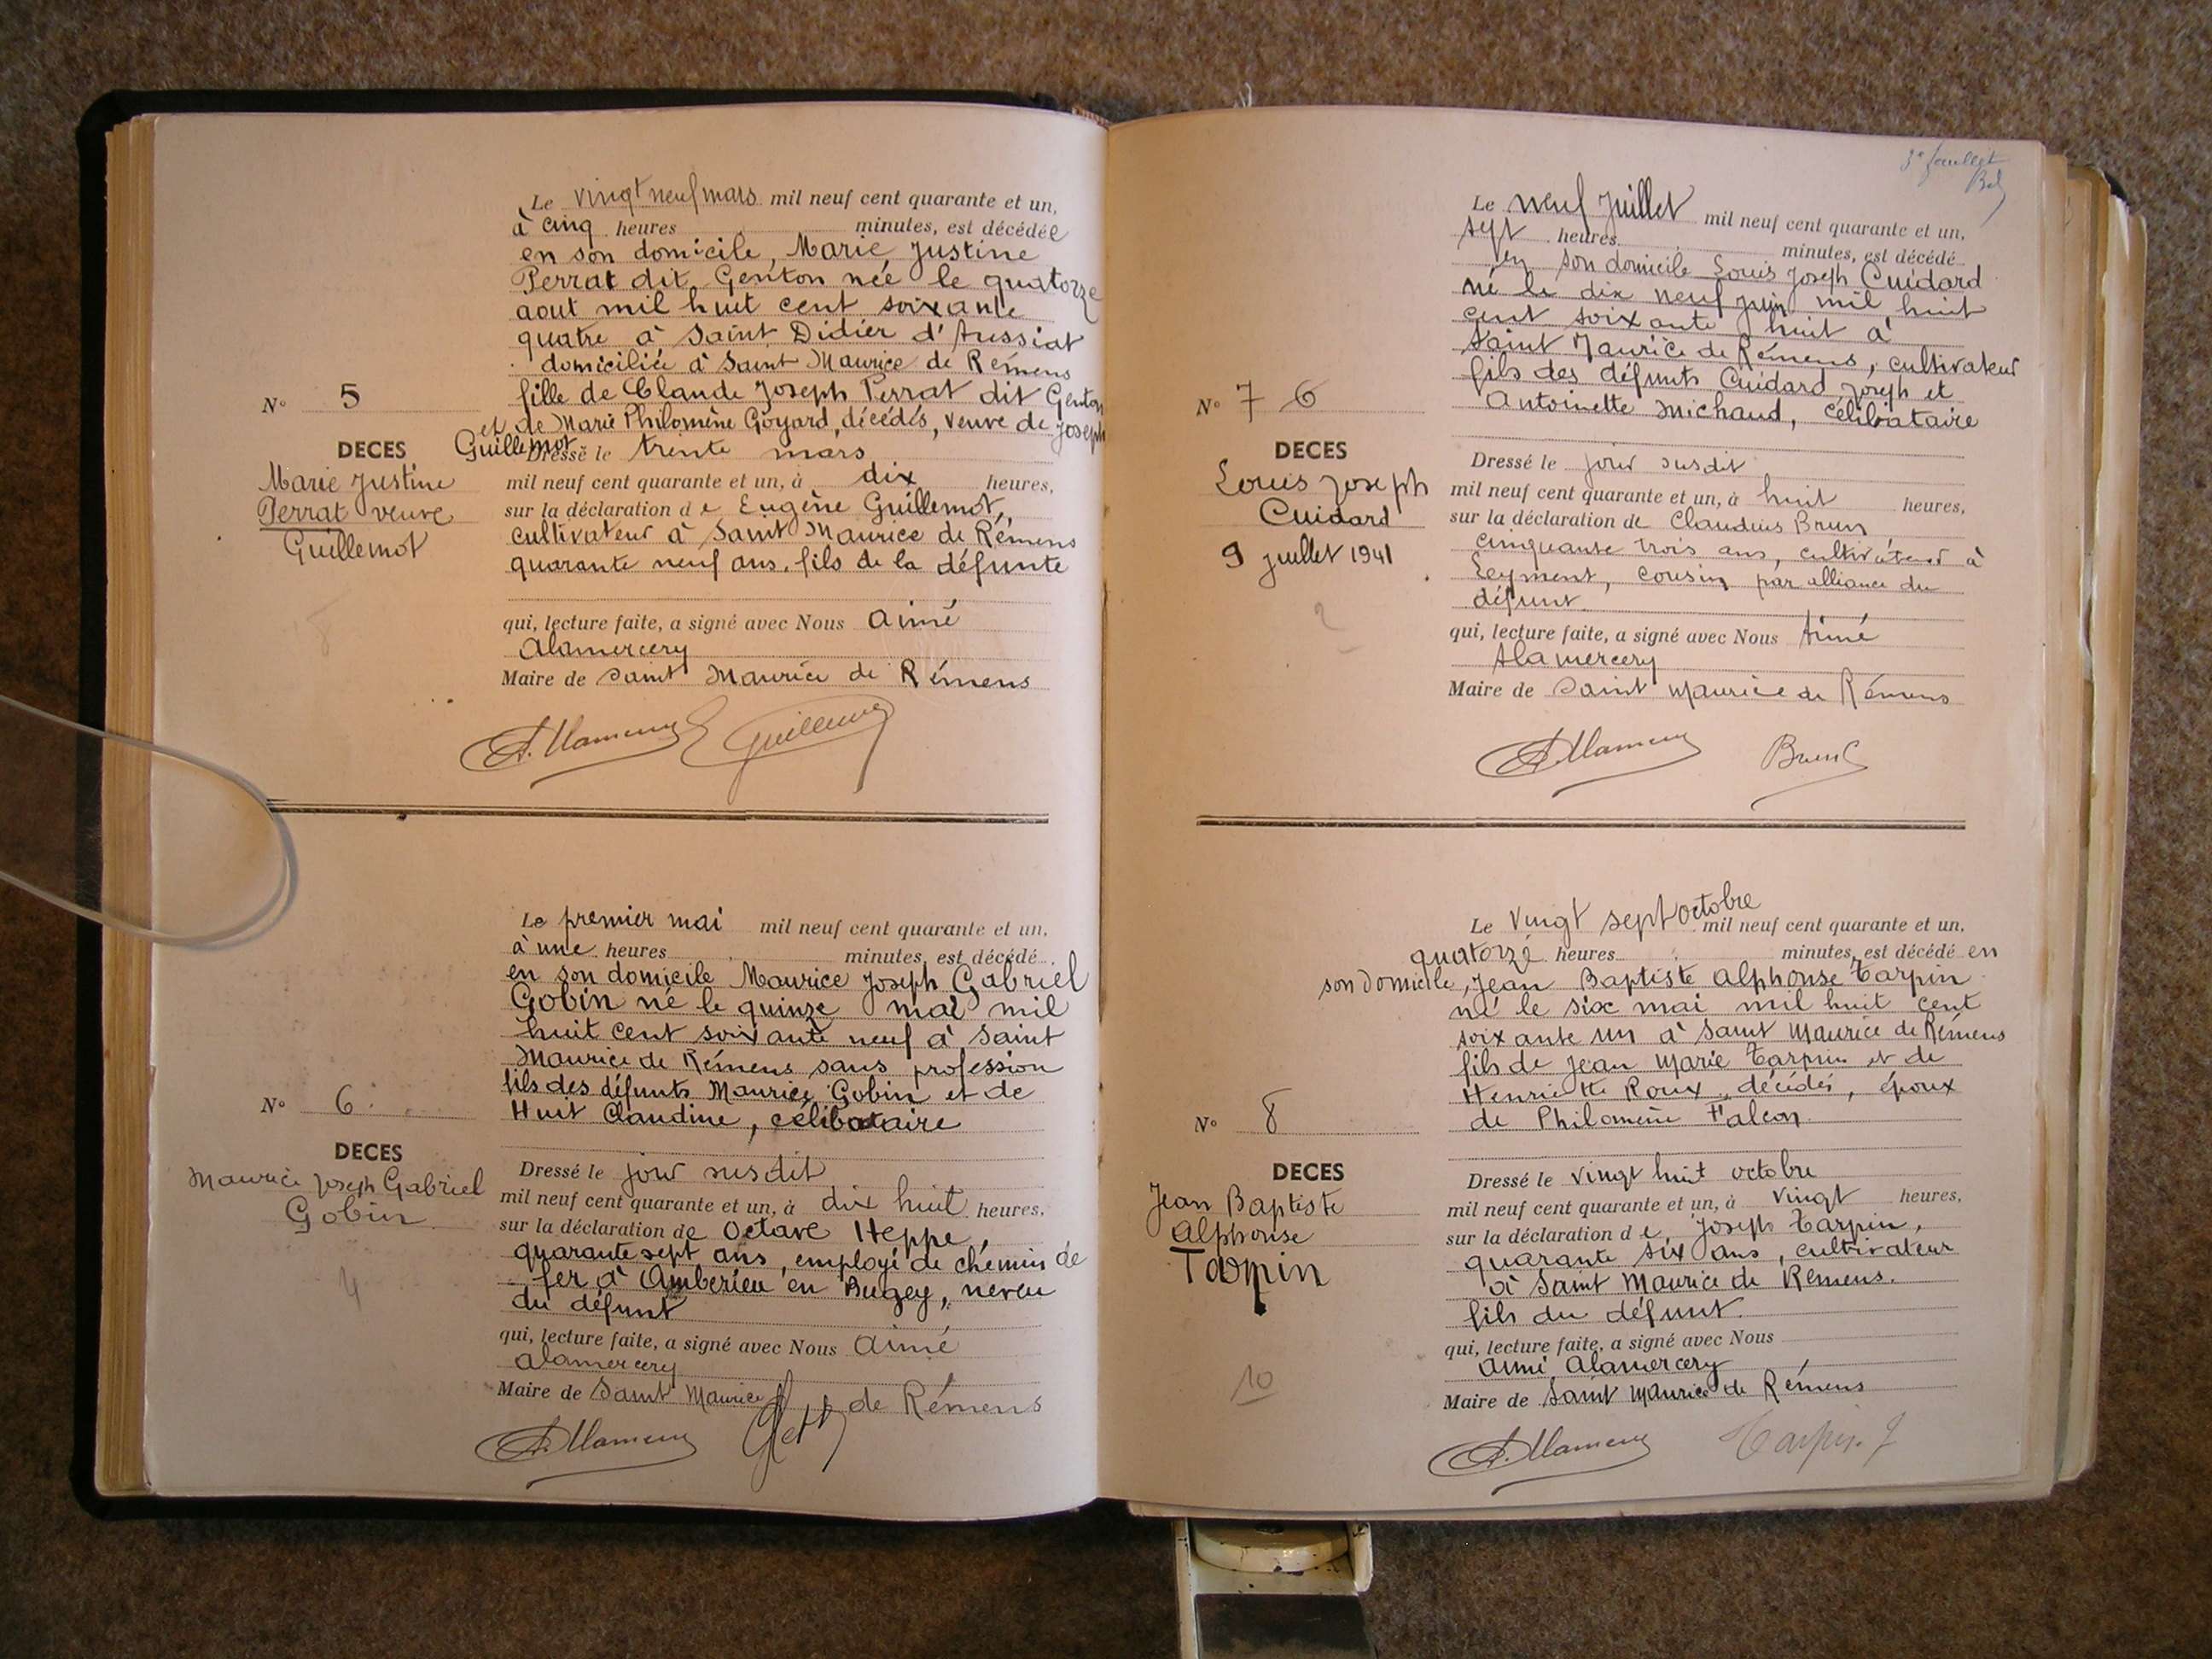 Le vingt neuf mars mil neuf cent quarante et un,
à cinq heures minutes, est décédée
en son domicile, Marie Justine
Perrat dit Genton née le quatorze
aout mil huit cent soixante
quatre à Saint Didier d'Aussiat
domiciliée à Saint Maurice de Rémens
fille de Claude Joseph Perrat dit Genton
et de Marie Philomène Goyard, décédés, veuve de Joseph
Guillemot
N° 5
DECES
Marie Justine
Perrat veuve
Guillemot
Dressé le trente mars
mil neuf cent quarante et un, à dix heures,
sur la déclaration de Eugène Guillemot,
cultivateur à Saint Maurice de Rémens
quarante neuf ans, fils de la défunte
qui, lecture faite, a signé avec Nous Aimé
Alamercery
Maire de Saint Maurice de Rémens
Le premier mai mil neuf cent quarante et un,
à une heures minutes, est décédé
en son domicile Maurice Joseph Gabriel
Gobin né le quinze mai mil
huit cent soixante neuf à Saint
Maurice de Rémens sans profession
fils des défunts Maurice Gobin et de
Huit Claudine, célibataire
N° 6
DECES
Maurice Joseph Gabriel
Gobin
4
Dressé le jour susdit
mil neuf cent quarante et un, à dix huit heures,
sur la déclaration de Octave Heppe,
quarante sept ans, employé de chemin de
fer à Ambérieu en Bugey, neveu
du défunt
qui, lecture faite, a signé avec Nous Aimé
Alamercery
Maire de Saint Maurice de Rémens
Le neuf Juillet mil neuf cent quarante et un,
sept heures minutes, est décédé
en son domicile Louis Joseph Cuidard
né le dix neuf juin mil huit
cent soixante huit à
Saint Maurice de Rémens, cultivateur
fils des défunts Cuidard Joseph et
Antoinette Michaud, célibataire
N° 7 6
DECES
Louis Joseph
Cuidard
9 juillet 1941
2
Dressé le jour susdit
mil neuf cent quarante et un, à huit heures,
sur la déclaration de Claudius Brun
cinquante trois ans, cultivateur à
Leyment, cousin par alliance du
défunt.
qui, lecture faite, a signé avec Nous Aimé
Alamercery
Maire de Saint Maurice de Rémens
Brun
Le vingt sept octobre mil neuf cent quarante et un,
quatorze heures minutes, est décédé en
son domicile, Jean Baptiste Alphonse Tarpin
né le six mai mil huit cent
soixante un à Saint Maurice de Rémens
fils de Jean Marie Tarpin et de
Henriette Roux, décédés, époux
de Philomène Falcon.
N° 8
DECES
Jean Baptiste
Alphonse
Tarpin
10
Dressé le vingt huit octobre
mil neuf cent quarante et un, à vingt heures,
sur la déclaration de Joseph Tarpin,
quarante six ans, cultivateur
à Saint Maurice de Rémens.
fils du défunt.
qui, lecture faite, a signé avec Nous
Aimé Alamercery
Maire de Saint Maurice de Rémens
Tarpin J